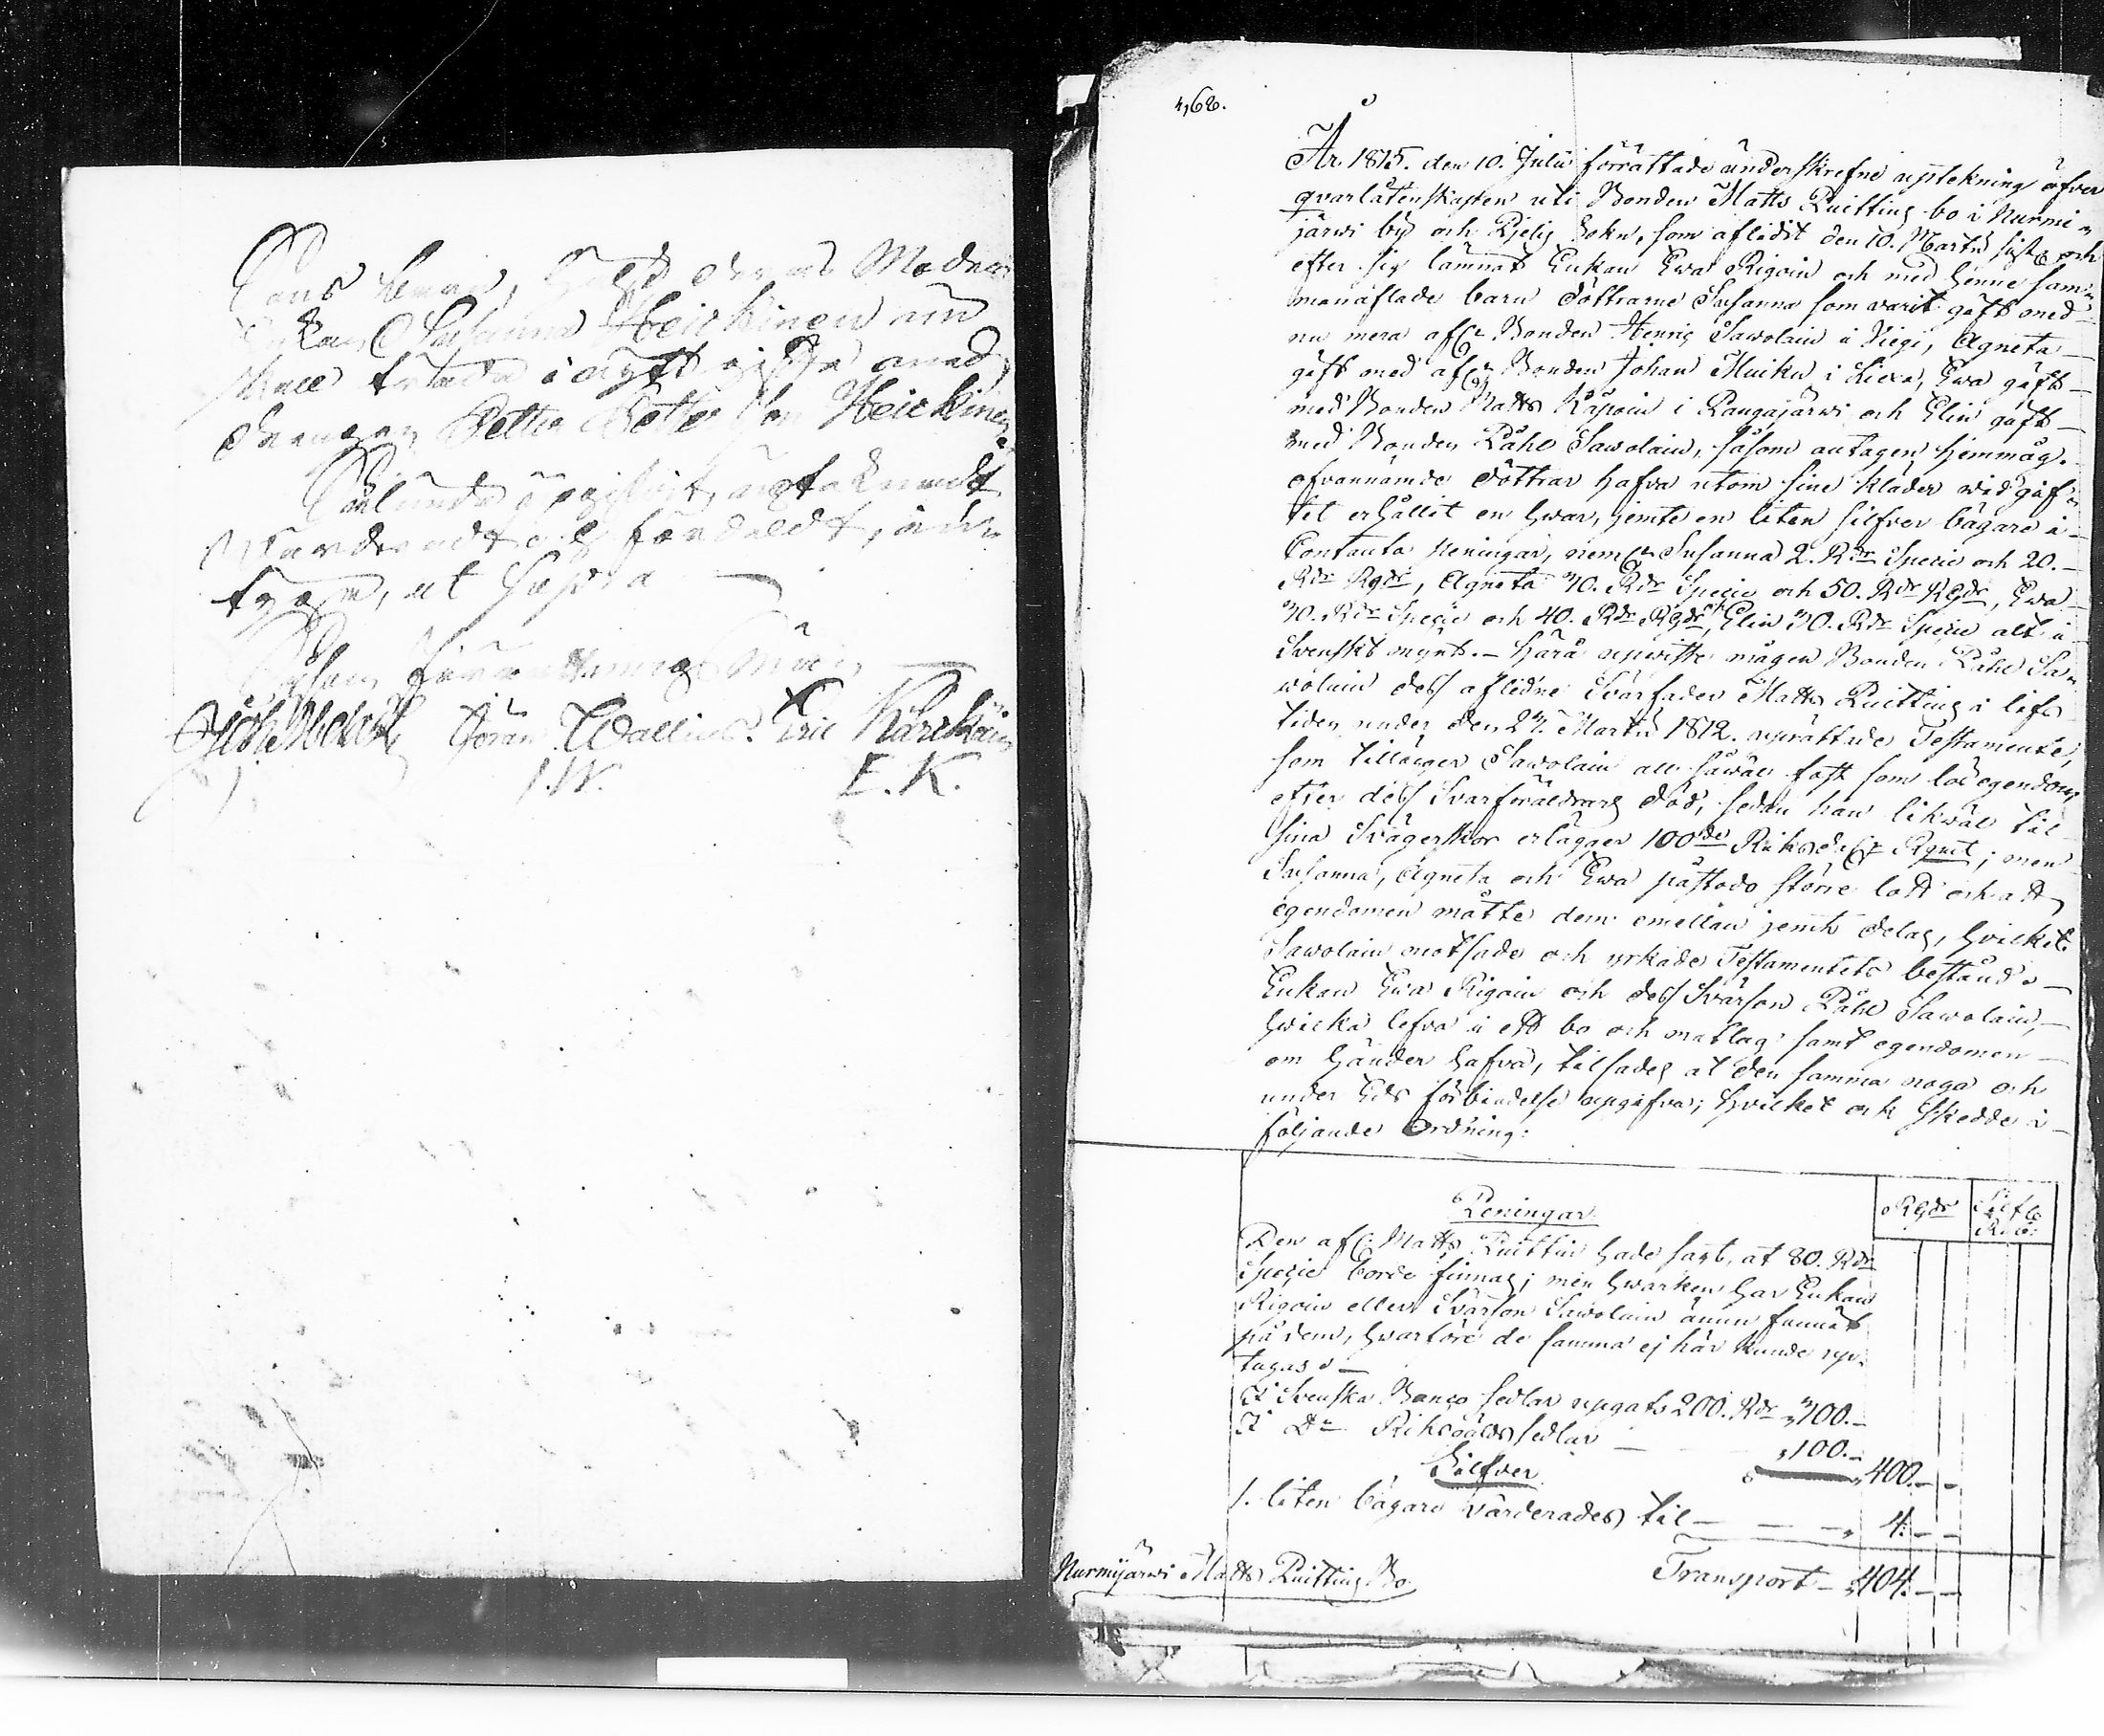 deras Moder
Enkan Susanna Heickinen nu
skall träda i nytt gifte med
drengen Petter Petter Son Heickinen
Sålunda upgifvit, uptecknadt
Värderadt och fördeldt,
tyga, at
Såsom Värderingsmän
Göran Wallius. Eric Karckäin
J.W. E. K.
År 1815. den 10. Julii förrättade underskrefne uptekning öfver
qvarlåtenskapen uti Bonden Matts Ruitting bo i Nurmi-
järwi by och Pjelis Sokn, som aflidit den 10. Martii sistl. och
efter sig lämnat Enkan Ewa Rigoin och med henne sam-
manaflade barn döttrarne Susanna som varit gift med
nu mera afl. Bonden Henric Sawolain i Viegi, Agneta
gift med afl. Bonden Johan Muiku i Liexa, Ewa gift
med Bonden Matts Räpoin i Pangajärwi och Elin gift
med Bonden Påhl Sawolain, såsom antagen hemmåg.
ofvannämde döttrar hafva utom sine kläder wid gif-
tet erhållit en hwar, jemte en liten silfver bägare i
Contanta peningar, neml. Susanna 2. Rdr Specie och 20.
Rdr Rgdr, Agneta 30. Rdr Specie och 50. Rdr Rgdr, Ewa
30. Rdr Specie och 40. Rdr Rgdr, Elin 30. Rdr Specie alt i
Svenskt mynt. Härå upwiste mågen Bonden Påhl Sa-
wolain dess aflidne Svärfader Matts Ruitting i lifs
tiden under den 27. Martii 1812. uprättade Testamente,
som tillägger Sawolain all såwäl fast som lös egendom
efter dess Svärföräldrars död, sedan han likwäl til
sina Svägerskor erlägger 100de Riksdaler Rgmt; men
Susanna, Agneta och Ewa påstodo större lott och att
egendomen måtte dem emellan jemt delas, hvilket
Sawolain motsade och yrkade Testamentets bestånd.
Enkan Ewa Rigoin och dess Svärson Påhl Sawolain,
hwilka lefva i ett bo och matlag samt egendomen
om händer hafva, tilsades at den samma noga och
under Eds förbindelse upgifva; hvilket ock skedde i
följande Ordning:
Peningar
Rgdr Silfv.
Den afl. Matts Ruittin hade sagt, at 80. Rdr
Specie borde finnas; men hwarken har Enkan
Rigoin eller Svärson Sawolain ännu funnit
på dem, hwarföre de samma ej här kunde up-
tagas.
I Svenska Banco sedlar upgafs 200. Rdr 300.
I Do Riksgälds sedlar 100. 400.
Silfver
1. liten bägare värderades til 4.
Transport 404.
Nurmijärwi Matts Ruitting Bo